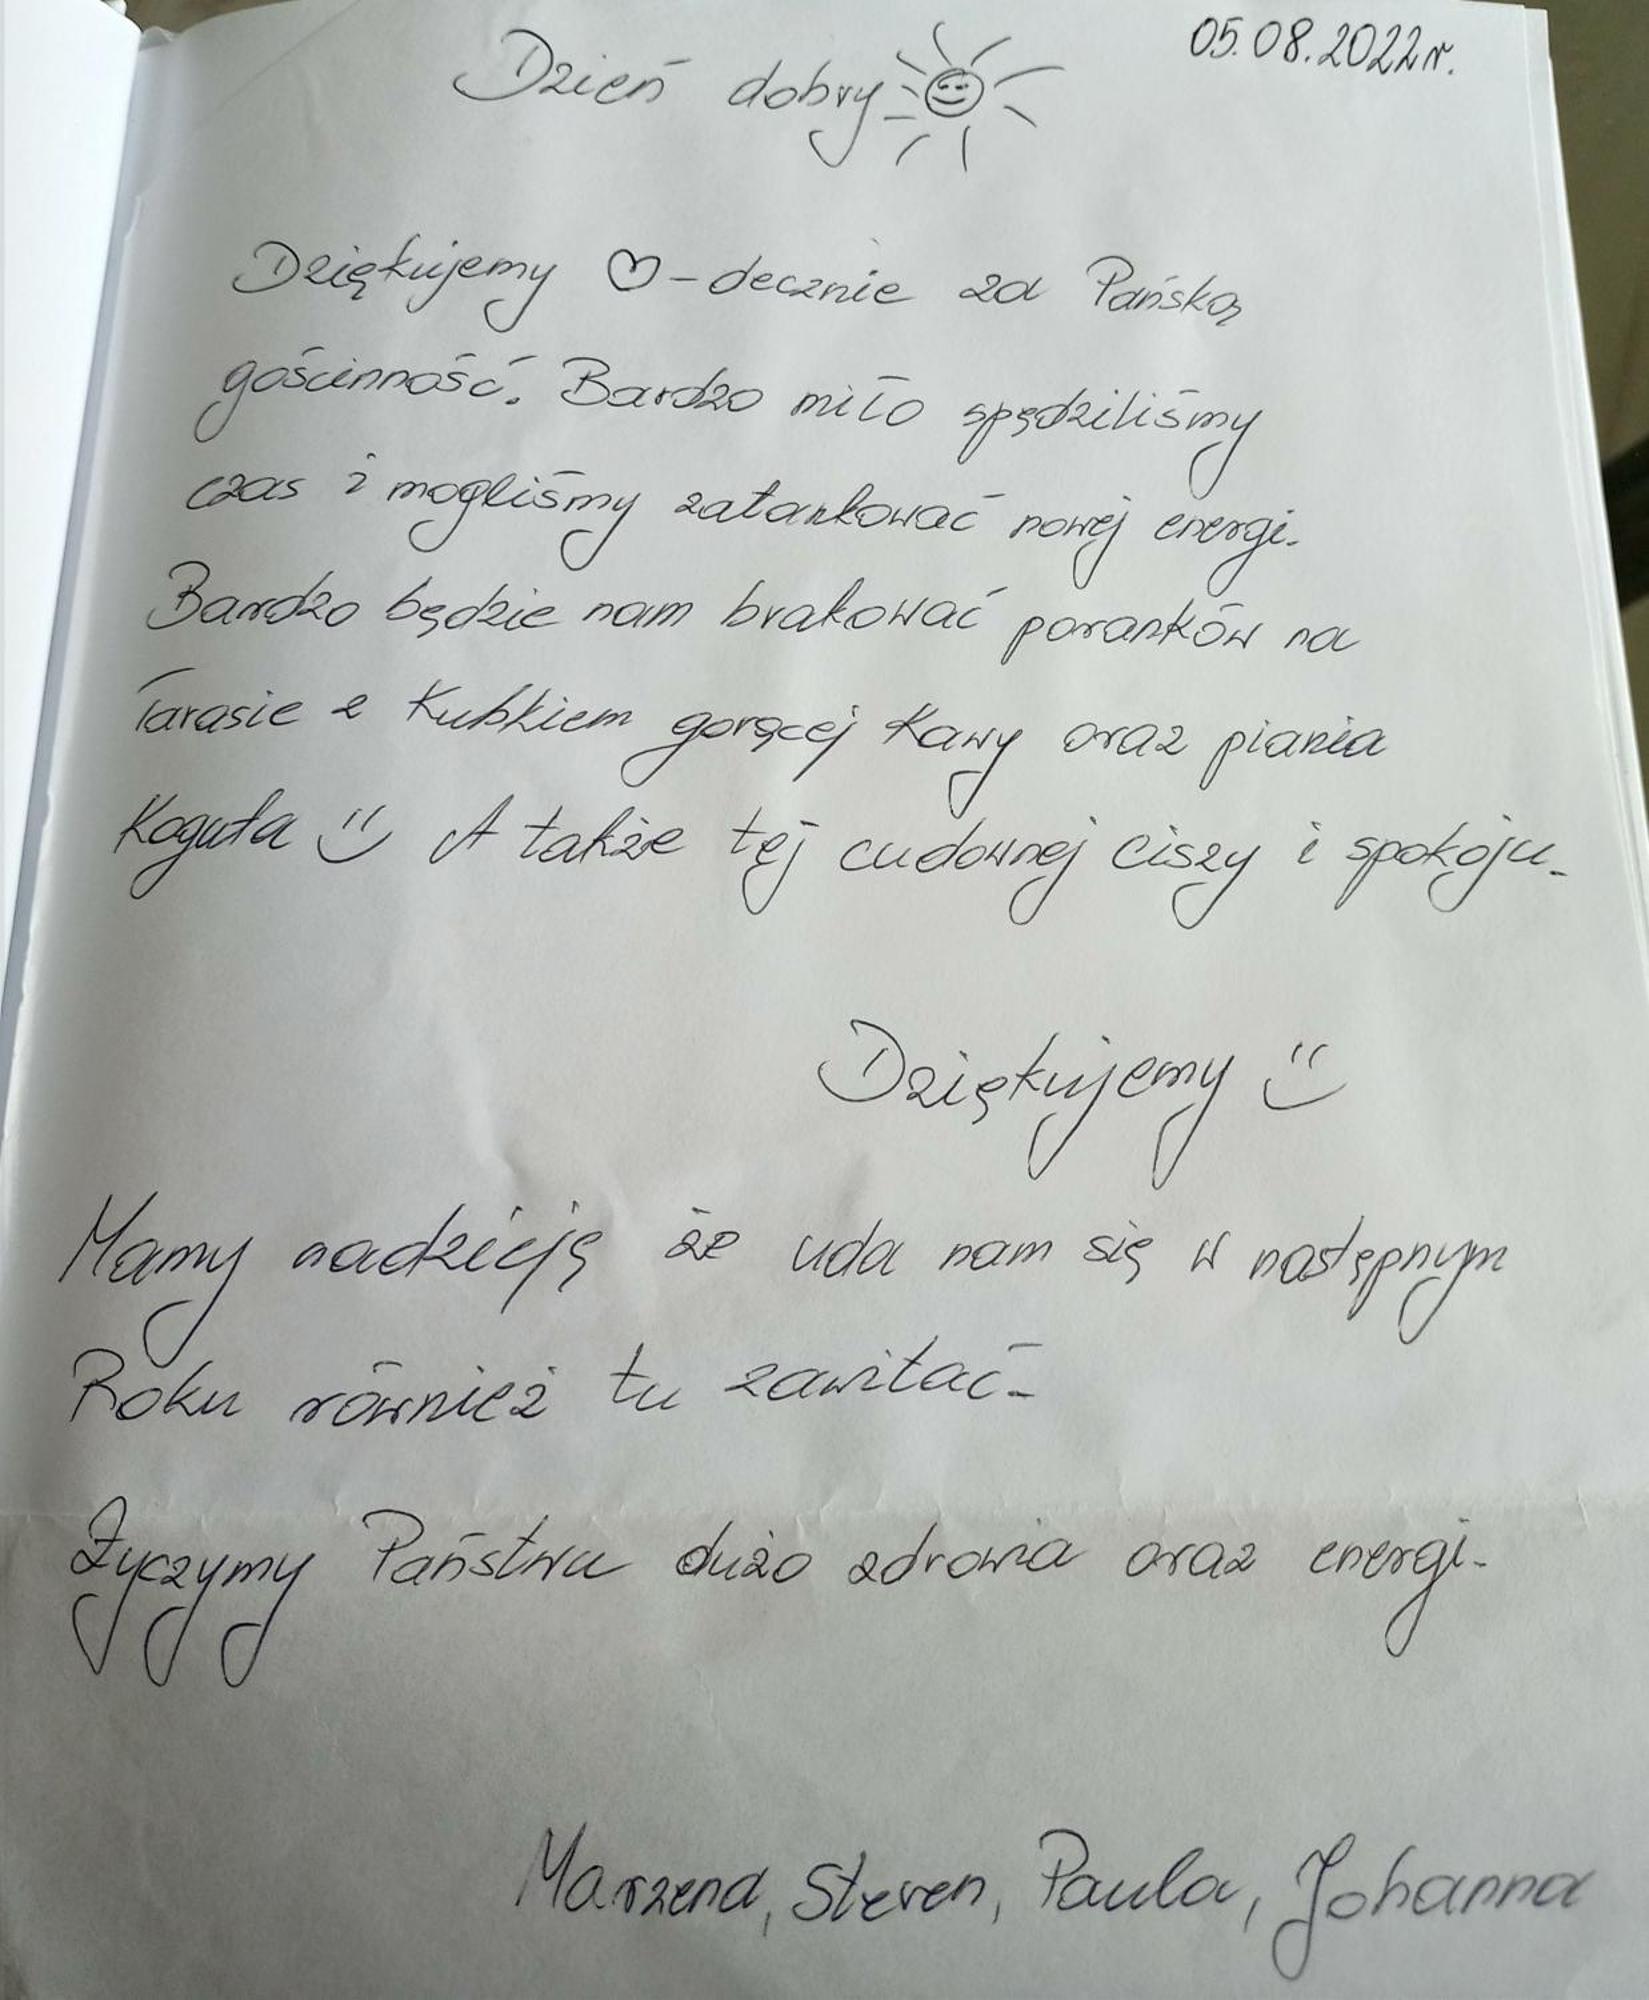 05.08.2022r.
Dzień dobry
Dziękujemy ♡-decznie za Pańską
gościnność. Bardzo miło spędziliśmy
czas i mogliśmy zatankować nowej energi.
Bardzo będzie nam brakować poranków na
Tarasie z Kubkiem gorącej Kawy oraz piania
Koguta :) A także tęj cudownej ciszy i spokoju.
Dziękujemy :)
Mamy nadzieję że uda nam się w następnym
Roku również tu zawitać.
Życzymy Państwu dużo zdrowia oraz energi.
Marzena, Steven, Paula, Johanna